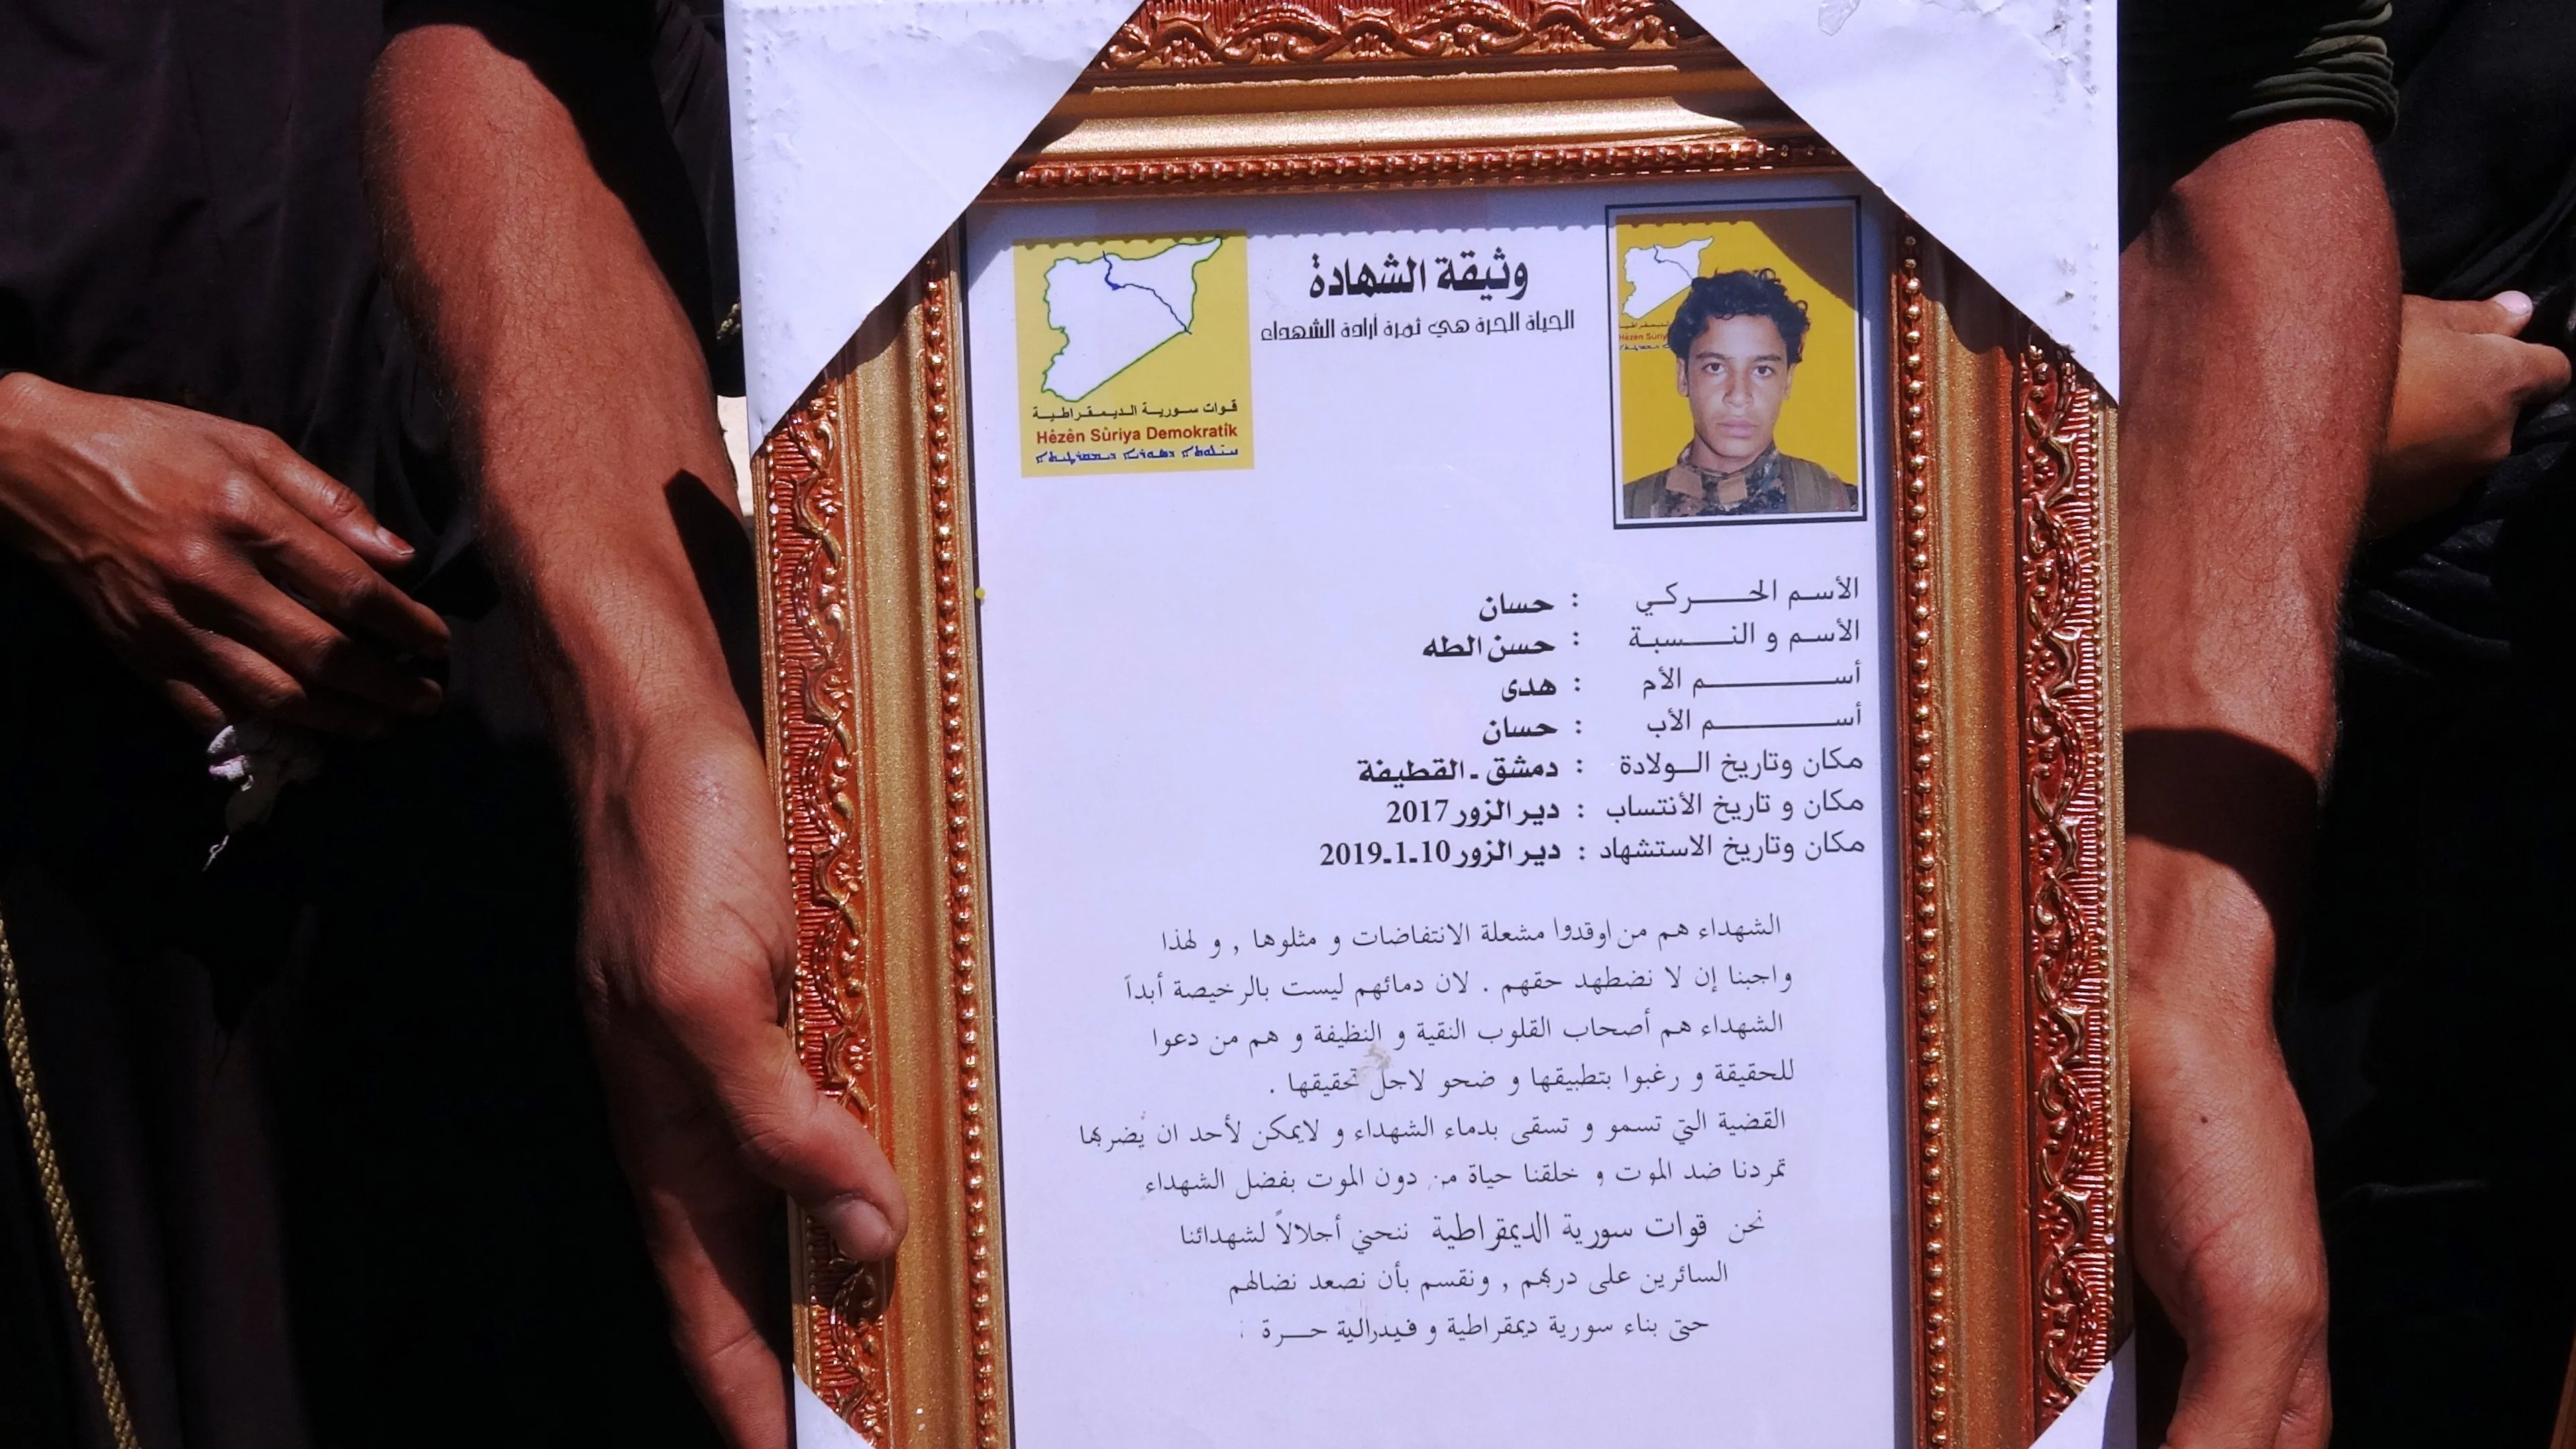 وثيقة الشهادة
الحياة الحرة هي ثمرة أرادة الشهداء
قوات سورية الديمقراطية
Hêzên Sûriya Demokratîk
الأسم الحركي : حسان
الأسم و النسبة : حسن الطه
أسم الأم : هدى
أسم الأب : حسان
مكان وتاريخ الولادة : دمشق - القطيفة
مكان و تاريخ الأنتساب : دير الزور 2017
مكان وتاريخ الاستشهاد : دير الزور 10-1-2019
الشهداء هم من اوقدوا مشعلة الانتفاضات و مثلوها , و لهذا
واجبنا إن لا نضطهد حقهم . لان دمائهم ليست بالرخيصة أبداً
الشهداء هم أصحاب القلوب النقية و النظيفة و هم من دعوا
للحقيقة و رغبوا بتطبيقها و ضحو لاجل تحقيقها .
القضية التي تسمو و تسقى بدماء الشهداء و لايمكن لأحد ان يضربها
تمردنا ضد الموت و خلقنا حياة من دون الموت بفضل الشهداء
نحن قوات سورية الديمقراطية ننحني أجلالاً لشهدائنا
السائرين على دربهم , ونقسم بأن نصعد نضالهم
حتى بناء سورية ديمقراطية و فيدرالية حرة